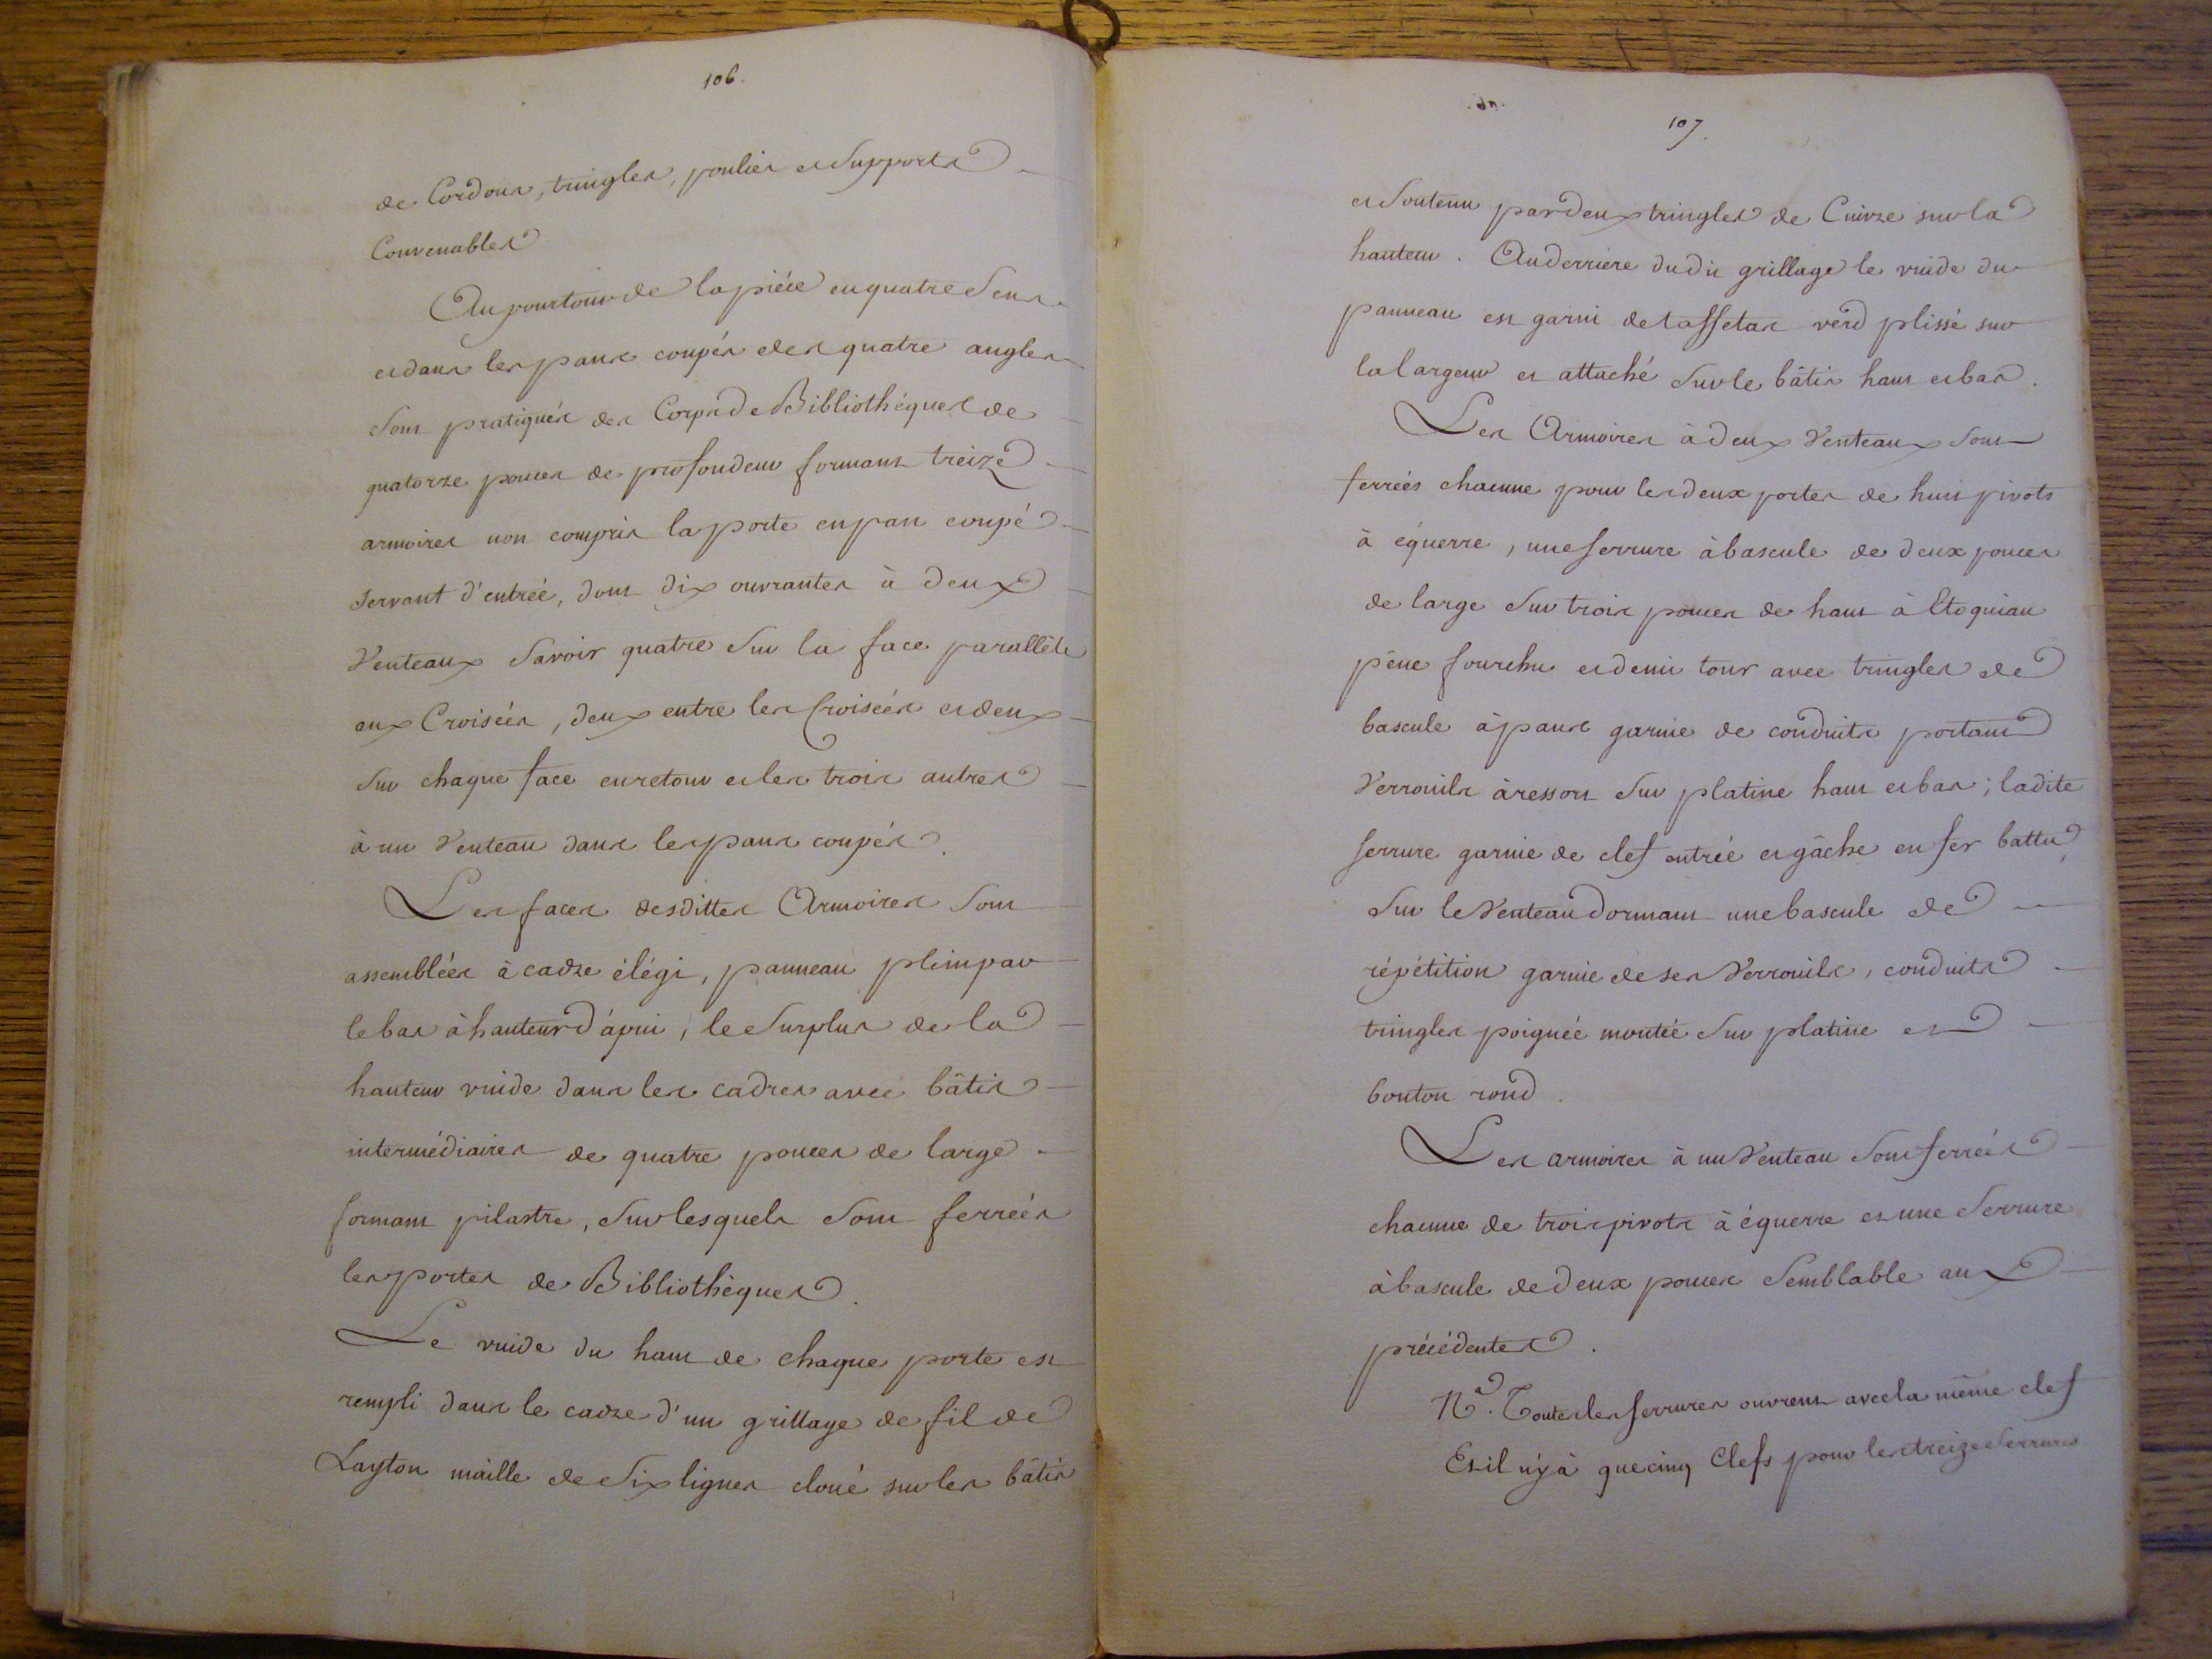 106.
de Cordons, tringles, poulies et Supports
Convenables
Au pourtour de la piéce en quatre Sens
et dans les pans coupés des quatre angles
Sont pratiqués des Corps de Bibliothéques de
quatorze pouces de profondeur formant treize
armoires non compris la porte en pan coupé
servant d'entrée, dont dix ouvrantes à deux
Venteaux Savoir quatre Sur la face paralléle
aux Croisées, deux entre les Croisées et deux
Sur chaque face en retour et les trois autres
à un Venteau dans les pans coupés.
Les faces desdittes Armoires Sont
assemblées à cadre élégi, panneau plein par
le bas à hauteur d'apui, le Surplus de la
hauteur vuide dans les cadres avec bâtis
intermédiaires de quatre pouces de large
formant pilastre, Sur lesquels Sont ferrées
les portes de Bibliothèques.
Le vuide du haut de chaque porte est
rempli dans le cadre d'un grillage de fil de
Layton maille de Six lignes cloué sur les bâtis
107.
et Soutenu par deux tringles de Cuivre sur la
hauteur. Au derriere dudit grillage le vuide du
panneau est garni de taffetas verd plissé sur
la largeur et attaché Sur le bâtis haut et bas.
Les Armoires à deux Venteaux Sont
ferrées chacune pour les deux portes de huit pivots
à équerre, une serrure à bascule de deux pouces
de large Sur trois pouces de haut à Etoquiau
pêne fourchu et demi tour avec tringles de
bascule à pans garnie de conduits portant
Verrouils à ressort Sur platine haut et bas; ladite
serrure garnie de clef entrée et gâche en fer battu,
Sur le Venteau dormant une bascule de
répétition garnie de ses Verrouils, conduits
tringles poignée montée Sur platine et
bouton rond.
Les armoires à un Venteau Sont ferrées
chacune de trois pivots à équerre et une Serrure
à bascule de deux pouces Semblable aux
précédentes.
Na. Toutes les serrures ouvrent avec la même clef
Et il n'y à que cinq Clefs pour les treize Serrures